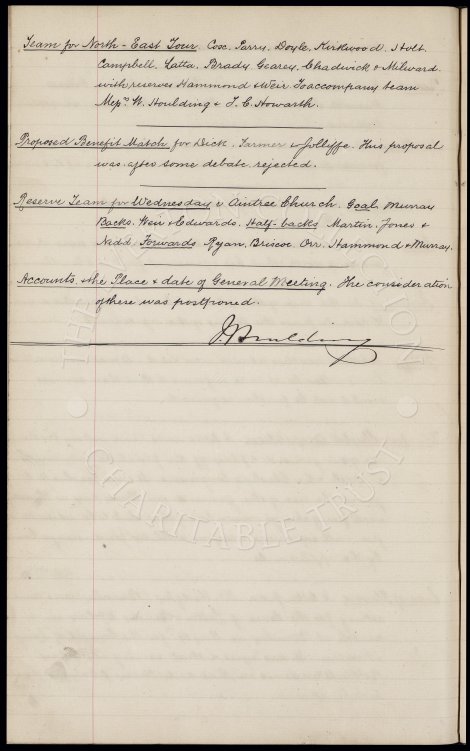 Team for North-East Tour. Cox. Parry, Doyle, Kirkwood. Holt.
Campbell. Latta. Brady. Geary. Chadwick & Milward.
with reserves Hammond & Weir. To accompany team
Messrs W. Houlding & T. C. Howarth.
Proposed Benefit Match for Dick. Farmer & Jolliffe. This proposal
was after some debate rejected.
Reserve Team for Wednesday v Aintree Church. Goal. Murray
Backs. Weir & Edwards. Half-backs Martin. Jones &
Nidd. Forwards Ryan, Briscoe. Orr. Hammond & Murray.
Accounts & the Place & date of General Meeting. The consideration
of these was postponed.
J. Houlding
THE COLLECTION
CHARITABLE TRUST